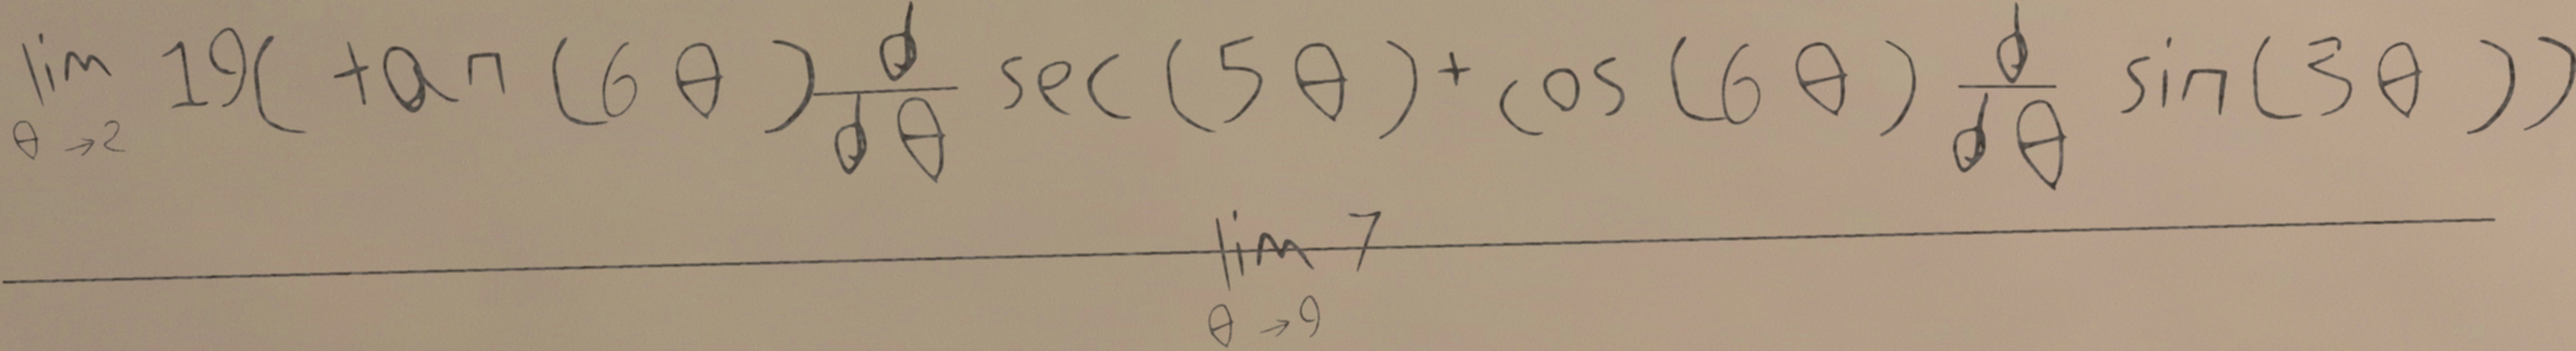 \frac{\lim_{\theta \to 2} 19(\tan(6\theta)\frac{d}{d\theta}\sec(5\theta)+\cos(6\theta)\frac{d}{d\theta}\sin(3\theta))}{\lim_{\theta \to 9} 7}